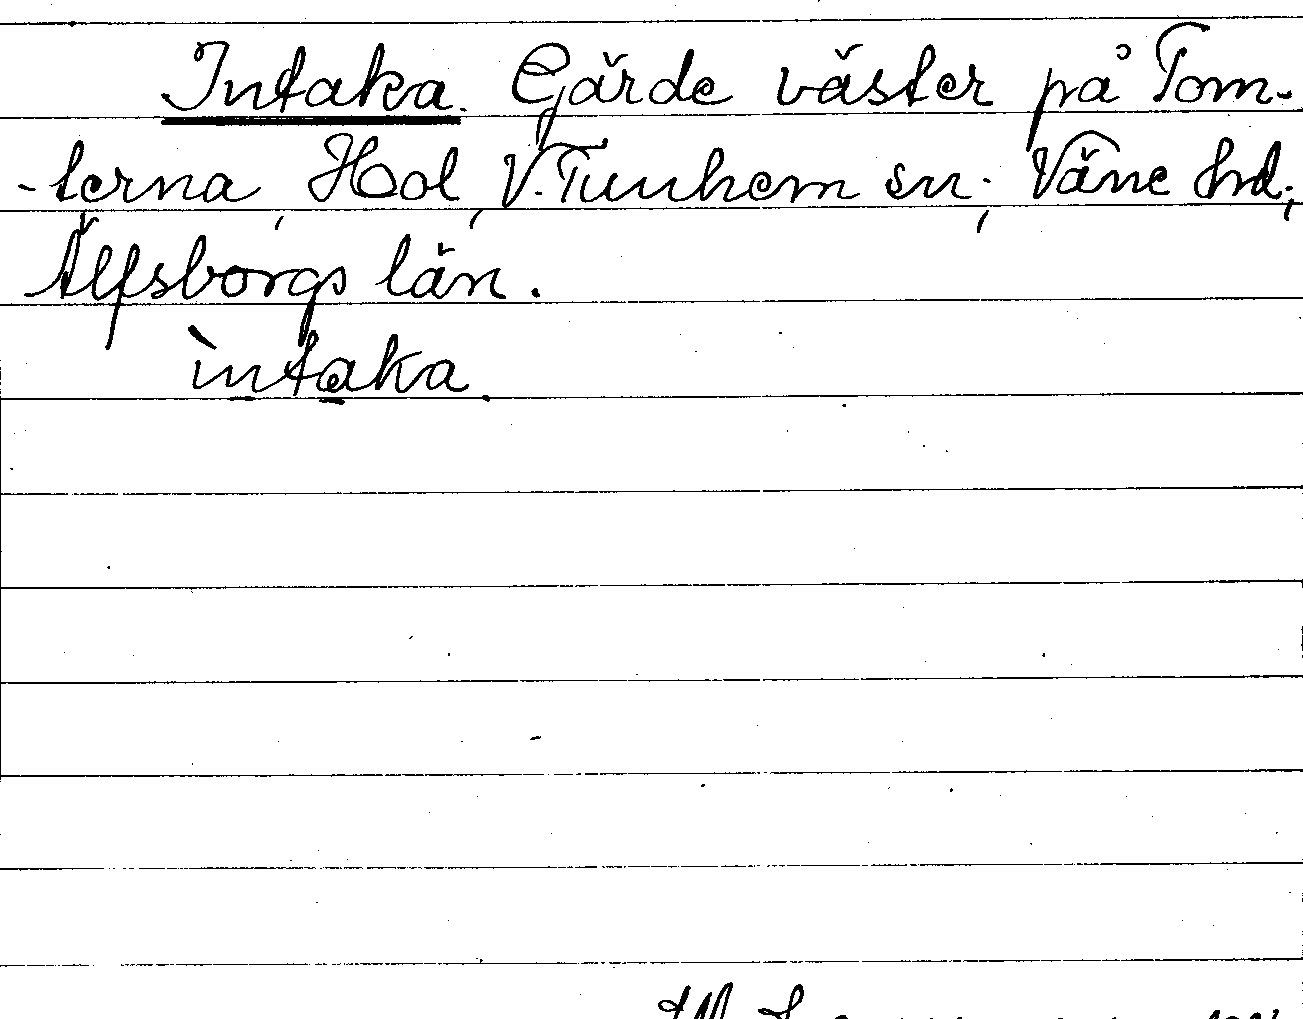 Intaka. Gärde väster på Tom-
-terna, Hol, V. Tunhem sn., Väne hd.,
Älfsborgs län.
ìntaka.